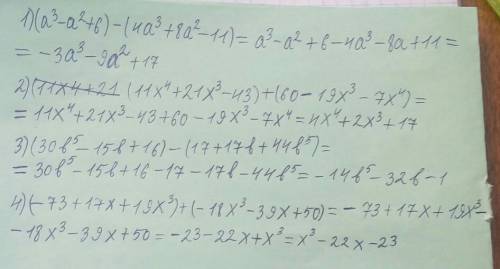 1) (a³-a²+6)-(4a³+8a²-11)=a³-a²+6-4a³-8a+11=
=-3a³-9a²+17
2) (11x4+21 (11x⁴+21x³-43)+(60-19x³-7x⁴)=
=11x⁴+21x³-43+60-19x³-7x⁴=4x⁴+2x³+17
3) (30b⁵-15b+16)-(17+17b+44b⁵)=
=30b⁵-15b+16-17-17b-44b⁵=-14b⁵-32b-1
4) (-73+17x+19x³)+(-18x³-39x+50)=-73+17x+19x³-
-18x³-39x+50=-23-22x+x³=x³-22x-23